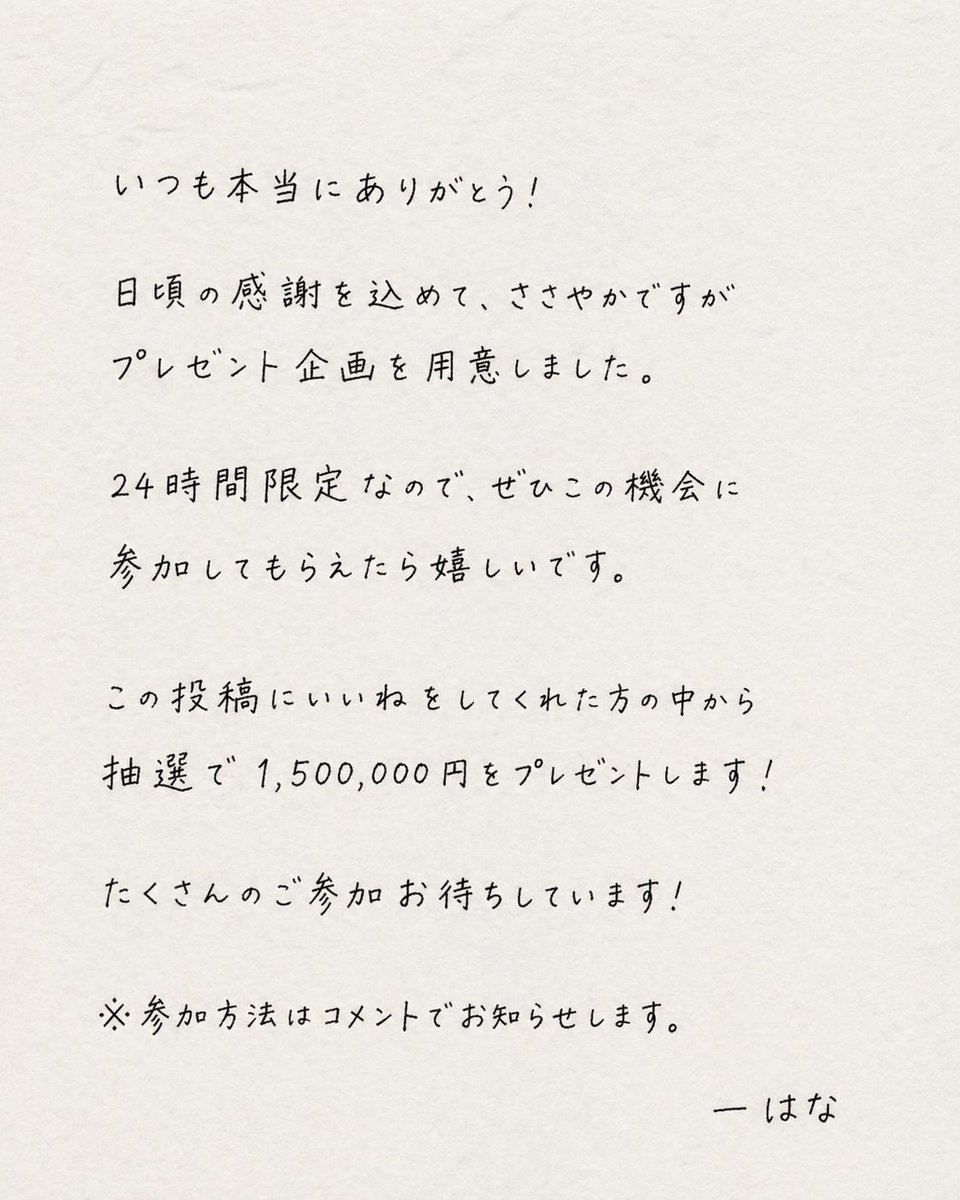 いつも本当にありがとう！
日頃の感謝を込めて、ささやかですが
プレゼント企画を用意しました。
24時間限定なので、ぜひこの機会に
参加してもらえたら嬉しいです。
この投稿にいいねをしてくれた方の中から
抽選で1,500,000円をプレゼントします！
たくさんのご参加お待ちしています！
※参加方法はコメントでお知らせします。
― はな